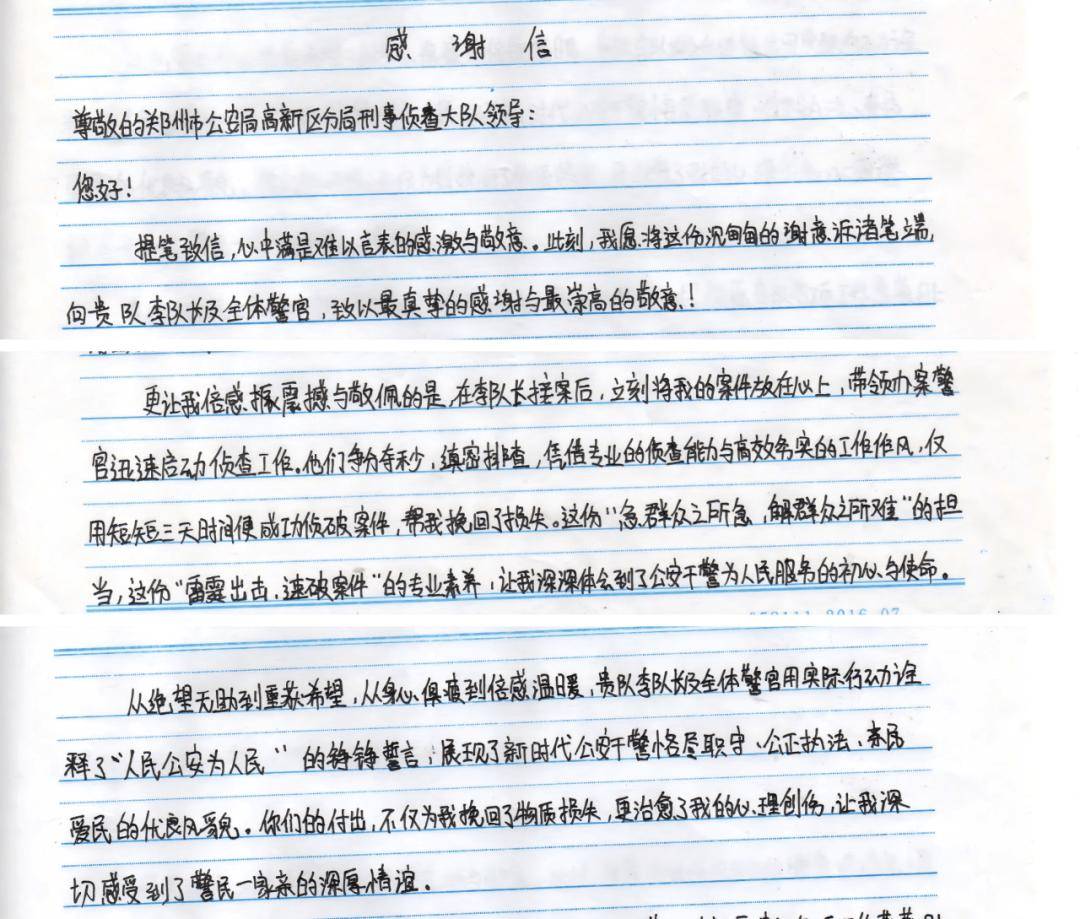 感谢信
尊敬的郑州市公安局高新区分局刑事侦查大队领导：
您好！
提笔致信，心中满是难以言表的感激与敬意。此刻，我愿将这份沉甸甸的谢意诉诸笔端，
向贵队李队长及全体警官，致以最真挚的感谢与最崇高的敬意！
更让我倍感振震撼与敬佩的是，在李队长接案后，立刻将我的案件放在心上，带领办案警
官迅速启动侦查工作。他们争分夺秒，缜密排查，凭借专业的侦查能力与高效务实的工作作风，仅
用短短三天时间便成功侦破案件，帮我挽回了损失。这份“急群众之所急，解群众之所难”的担
当，这份“雷霆出击，速破案件”的专业素养，让我深深体会到了公安干警为人民服务的初心与使命。
从绝望无助到重获希望，从身心俱疲到倍感温暖，贵队李队长及全体警官用实际行动诠
释了“人民公安为人民”的铮铮誓言，展现了新时代公安干警恪尽职守、公正执法、亲民
爱民的优良风貌。你们的付出，不仅为我挽回了物质损失，更治愈了我的心理创伤，让我深
切感受到了警民一家亲的深厚情谊。